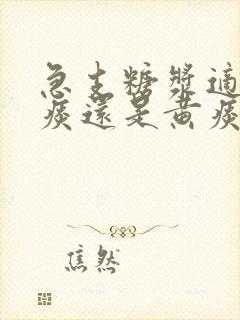 急支糖漿適
痰還是黃痰
焦然